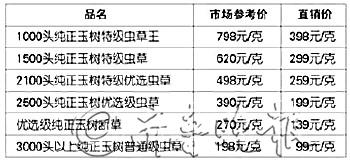 品名 市场参考价 直销价
1000头纯正玉树特级虫草王 798元/克 398元/克
1500头纯正玉树特级虫草 620元/克 299元/克
2100头纯正玉树特级优选虫草 498元/克 259元/克
2500头纯正玉树优选级虫草 390元/克 199元/克
优选级纯正玉树断草 270元/克 139元/克
3000头以上纯正玉树普通级虫草 198元/克 99元/克